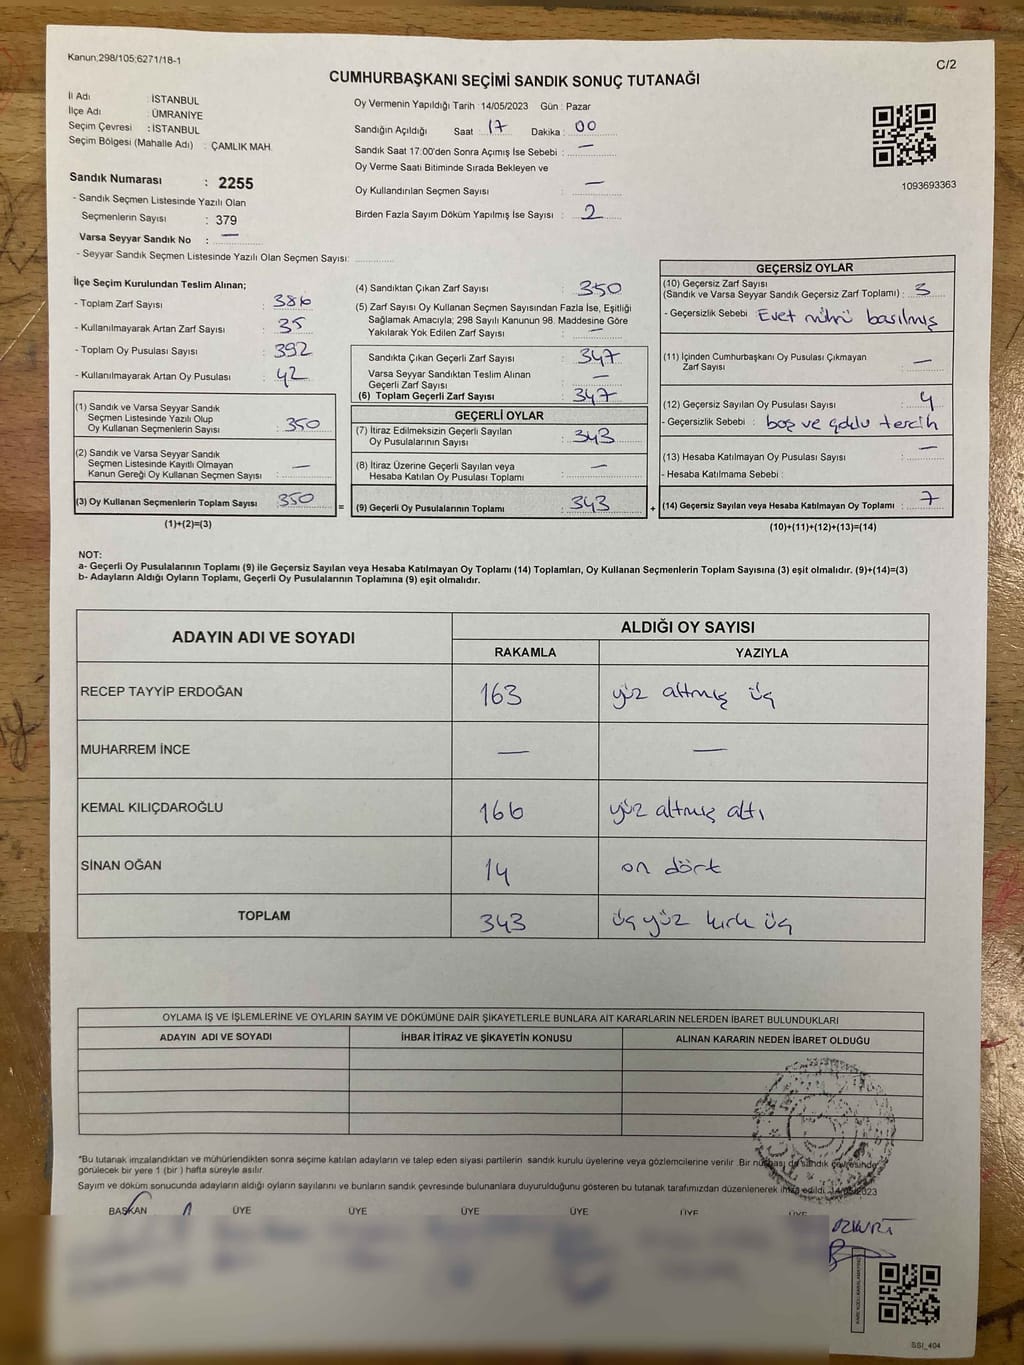 Kanun;298/105;6271/18-1
C/2
CUMHURBAŞKANI SEÇİMİ SANDIK SONUÇ TUTANAĞI
İl Adı : İSTANBUL
İlçe Adı : ÜMRANİYE
Seçim Çevresi : İSTANBUL
Seçim Bölgesi (Mahalle Adı) : ÇAMLIK MAH.
Sandık Numarası : 2255
- Sandık Seçmen Listesinde Yazılı Olan
Seçmenlerin Sayısı : 379
Varsa Seyyar Sandık No : —
- Seyyar Sandık Seçmen Listesinde Yazılı Olan Seçmen Sayısı:
Oy Vermenin Yapıldığı Tarih : 14/05/2023 Gün : Pazar
Sandığın Açıldığı Saat : 17 Dakika : 00
Sandık Saat 17:00'den Sonra Açımış İse Sebebi : —
Oy Verme Saati Bitiminde Sırada Bekleyen ve
Oy Kullandırılan Seçmen Sayısı : —
Birden Fazla Sayım Döküm Yapılmış İse Sayısı : 2
1093693363
İlçe Seçim Kurulundan Teslim Alınan;
- Toplam Zarf Sayısı : 386
- Kullanılmayarak Artan Zarf Sayısı : 35
- Toplam Oy Pusulası Sayısı : 392
- Kullanılmayarak Artan Oy Pusulası : 42
(1) Sandık ve Varsa Seyyar Sandık
Seçmen Listesinde Yazılı Olup
Oy Kullanan Seçmenlerin Sayısı : 350
(2) Sandık ve Varsa Seyyar Sandık
Seçmen Listesinde Kayıtlı Olmayan
Kanun Gereği Oy Kullanan Seçmen Sayısı : —
(3) Oy Kullanan Seçmenlerin Toplam Sayısı : 350
(1)+(2)=(3)
=
(4) Sandıktan Çıkan Zarf Sayısı : 350
(5) Zarf Sayısı Oy Kullanan Seçmen Sayısından Fazla İse, Eşitliği
Sağlamak Amacıyla; 298 Sayılı Kanunun 98. Maddesine Göre
Yakılarak Yok Edilen Zarf Sayısı : —
Sandıkta Çıkan Geçerli Zarf Sayısı : 347
Varsa Seyyar Sandıktan Teslim Alınan
Geçerli Zarf Sayısı : —
(6) Toplam Geçerli Zarf Sayısı : 347
GEÇERLİ OYLAR
(7) İtiraz Edilmeksizin Geçerli Sayılan
Oy Pusulalarının Sayısı : 343
(8) İtiraz Üzerine Geçerli Sayılan veya
Hesaba Katılan Oy Pusulası Toplamı : —
(9) Geçerli Oy Pusulalarının Toplamı : 343
+
GEÇERSİZ OYLAR
(10) Geçersiz Zarf Sayısı
(Sandık ve Varsa Seyyar Sandık Geçersiz Zarf Toplamı) : 3
- Geçersizlik Sebebi : Evet mührü basılmış
(11) İçinden Cumhurbaşkanı Oy Pusulası Çıkmayan
Zarf Sayısı : —
(12) Geçersiz Sayılan Oy Pusulası Sayısı : 4
- Geçersizlik Sebebi : boş ve çoklu tercih
(13) Hesaba Katılmayan Oy Pusulası Sayısı : —
- Hesaba Katılmama Sebebi :
(14) Geçersiz Sayılan veya Hesaba Katılmayan Oy Toplamı : 7
(10)+(11)+(12)+(13)=(14)
NOT:
a- Geçerli Oy Pusulalarının Toplamı (9) ile Geçersiz Sayılan veya Hesaba Katılmayan Oy Toplamı (14) Toplamları, Oy Kullanan Seçmenlerin Toplam Sayısına (3) eşit olmalıdır. (9)+(14)=(3)
b- Adayların Aldığı Oyların Toplamı, Geçerli Oy Pusulalarının Toplamına (9) eşit olmalıdır.
ADAYIN ADI VE SOYADI
ALDIĞI OY SAYISI
RAKAMLA YAZIYLA
RECEP TAYYİP ERDOĞAN 163 yüz altmış üç
MUHARREM İNCE — —
KEMAL KILIÇDAROĞLU 166 yüz altmış altı
SİNAN OĞAN 14 on dört
TOPLAM 343 üç yüz kırk üç
OYLAMA İŞ VE İŞLEMLERİNE VE OYLARIN SAYIM VE DÖKÜMÜNE DAİR ŞİKAYETLERLE BUNLARA AİT KARARLARIN NELERDEN İBARET BULUNDUKLARI
ADAYIN ADI VE SOYADI İHBAR İTİRAZ VE ŞİKAYETİN KONUSU ALINAN KARARIN NEDEN İBARET OLDUĞU
*Bu tutanak imzalandıktan ve mühürlendikten sonra seçime katılan adayların ve talep eden siyasi partilerin sandık kurulu üyelerine veya gözlemcilerine verilir. Bir nüshası da sandık çevresinde
görülecek bir yere 1 (bir ) hafta süreyle asılır.
Sayım ve döküm sonucunda adayların aldığı oyların sayılarını ve bunların sandık çevresinde bulunanlara duyurulduğunu gösteren bu tutanak tarafımızdan düzenlenerek imza edildi. 14/05/2023
BAŞKAN ÜYE ÜYE ÜYE ÜYE ÜYE ÜYE
SSI_404